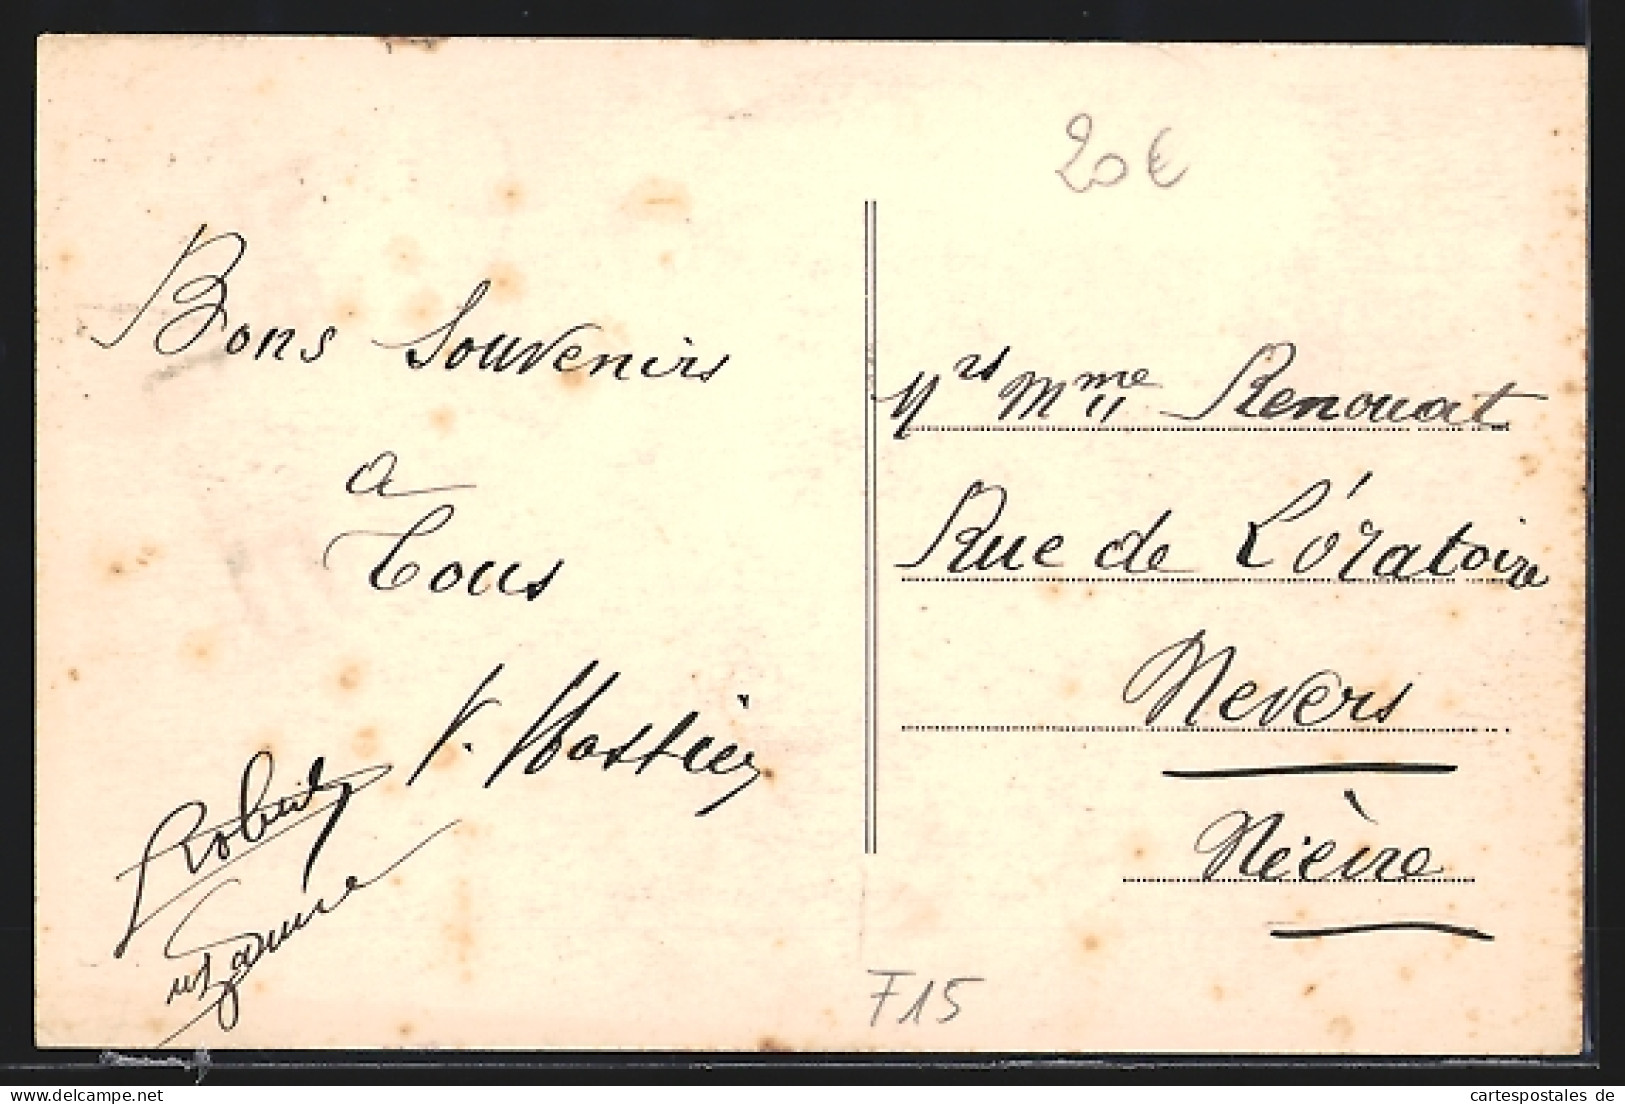 20€
Bons Souvenirs
a
Tous
V.
Robert
et Jeanne
Mrs Mme Renouat
Rue de L'óratoire
Nevers
Nièvre
F15
cartespostales de